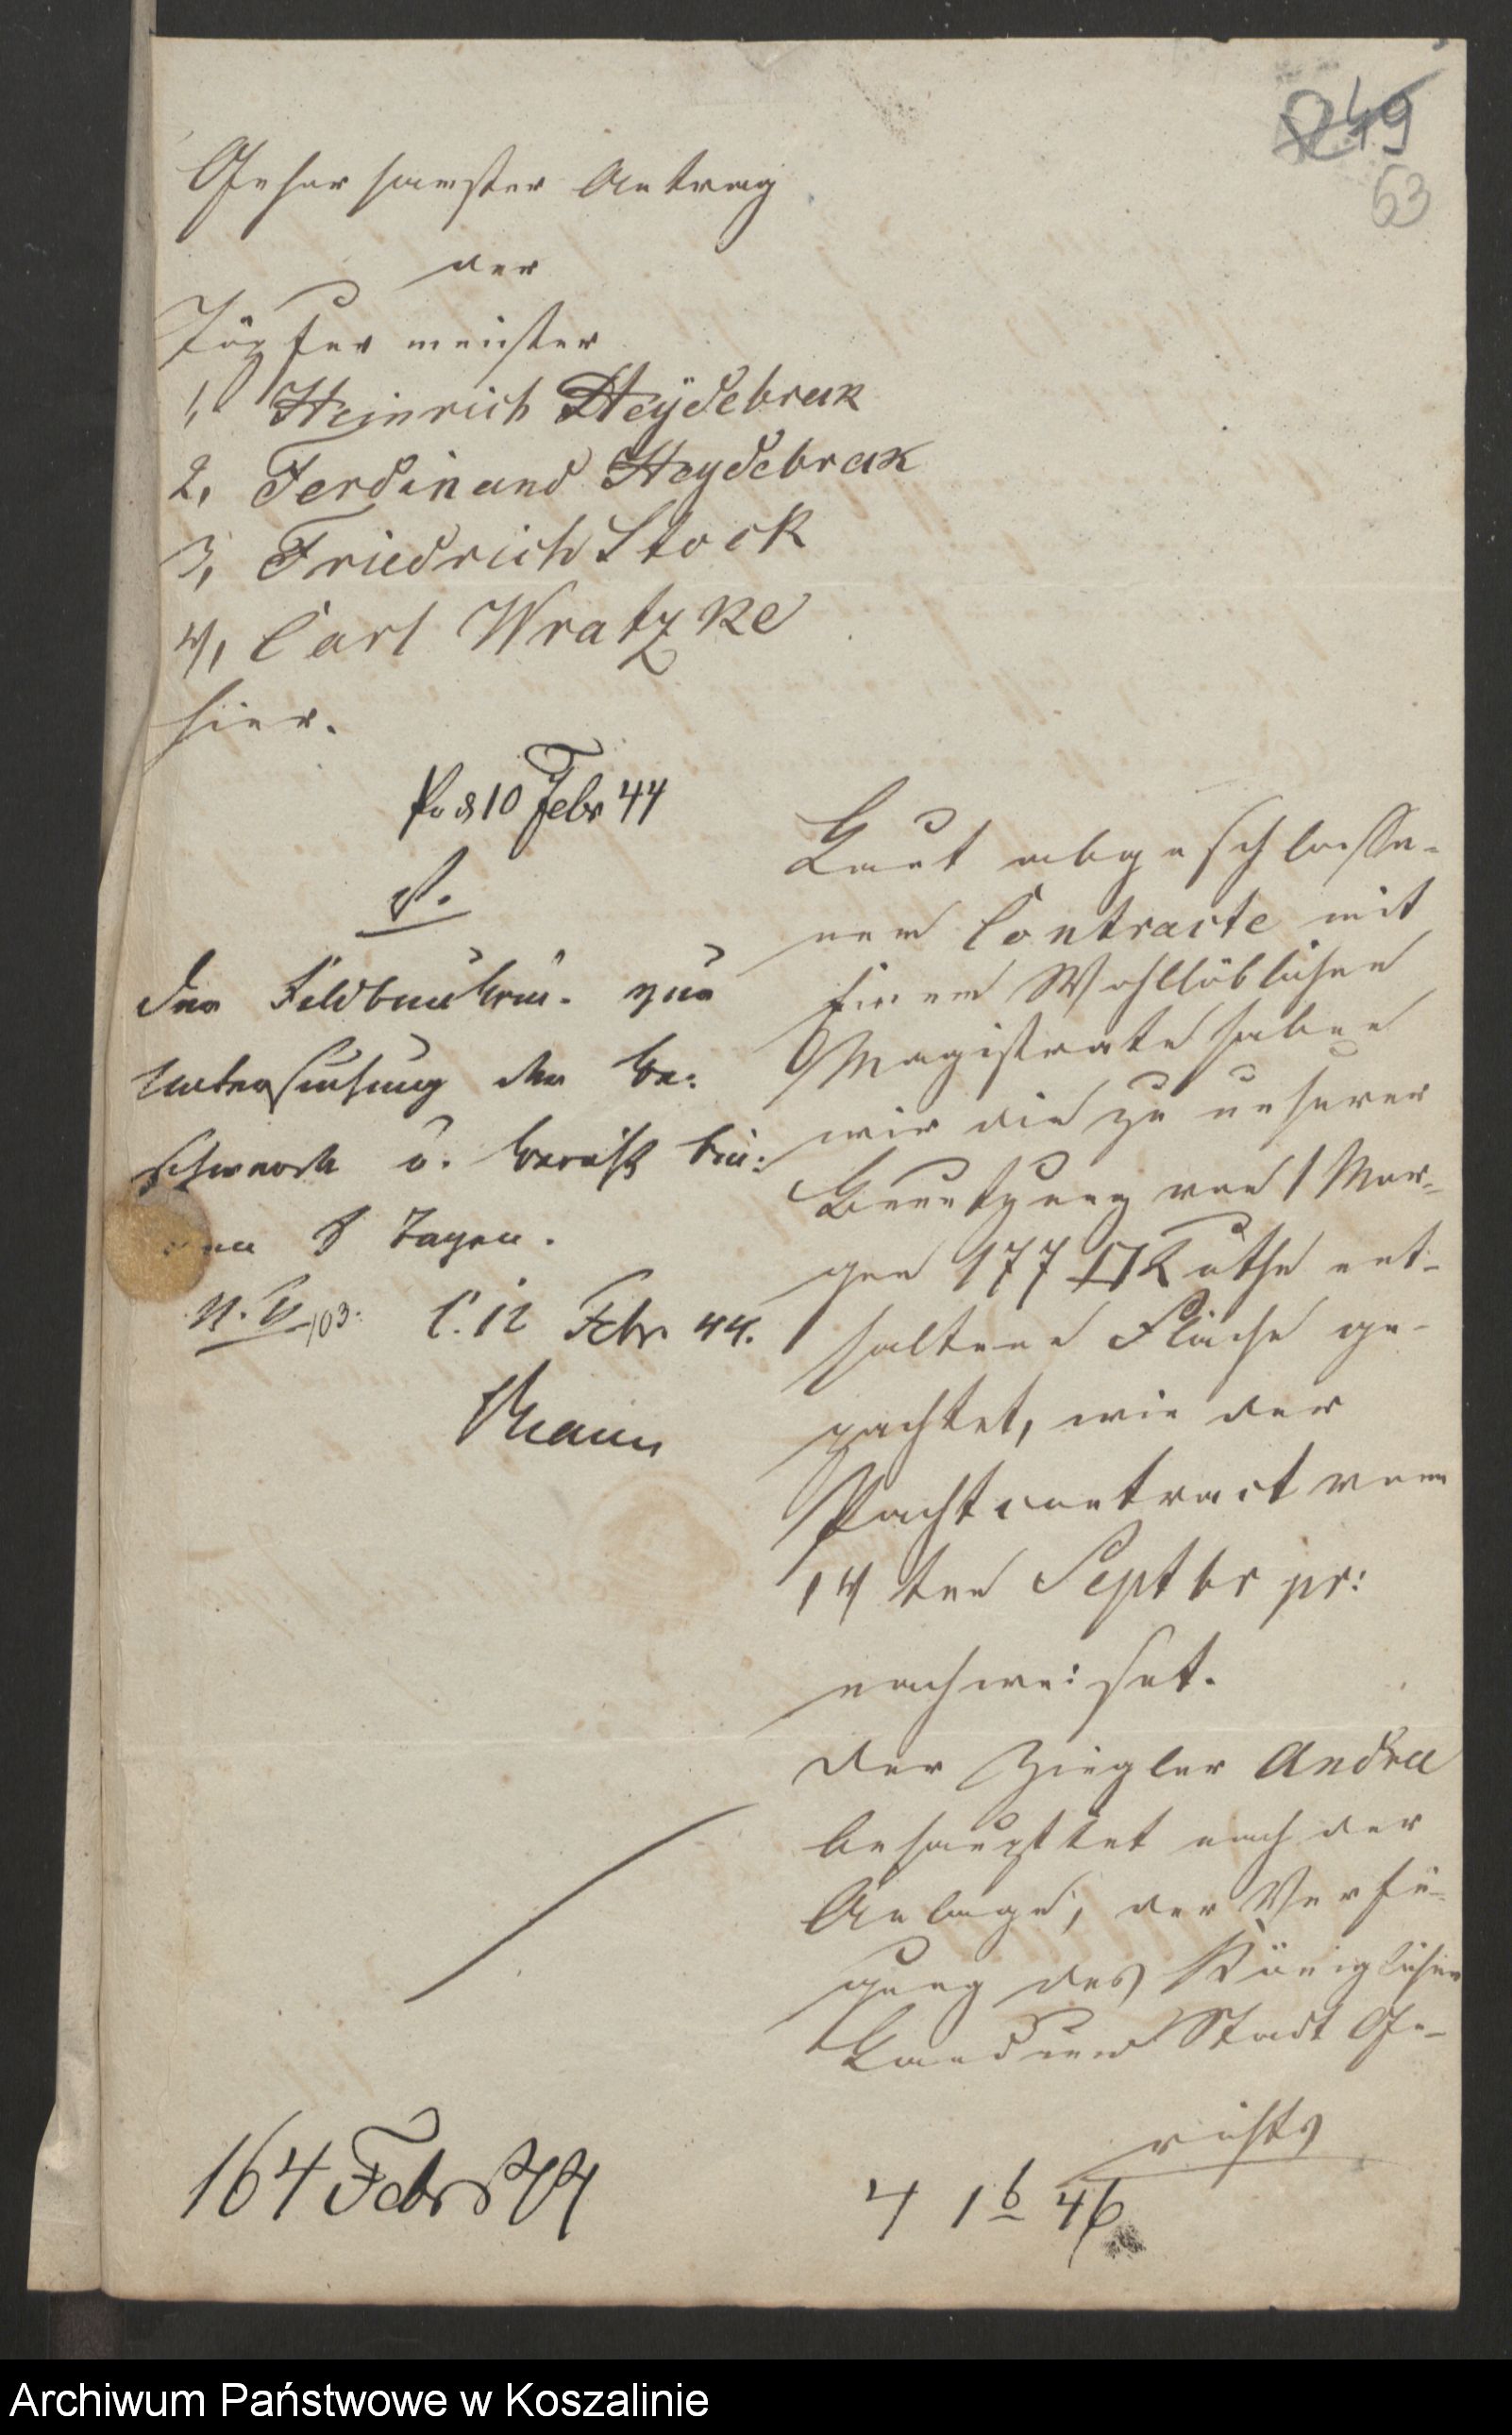 249
63
Gehorsamster Antrag
der
Töpfermeister
1, Heinrich Heÿdebrak
2, Ferdinand Heydebrak
3, Friedrich Stock
4, Carl Wratzke
hier.
10 Febr 44
Der Feldbau
Untersuchung der Be:
schwerde u. Bericht bin:
nen 8 Tagen.
C. 12 Febr 44.
Laut abgeschlosse-
nem Contracte mit
Einem Wohllöblichen
Magistrate haben
wir die zu unserer
Benutzung von 1 Mor-
gen 177 □Ruthe ent-
haltene Fläche ge-
pachtet, wie der
Pachtcontract vom
14ten Septbr pr:
nachweiset.
Der Ziegler Andree
behauptet nach der
Anlage, der Verfü-
gung des Königlichen
Land und Stadt Ge-
richts
164 Febr 44
4 1 b 46
Archiwum Państwowe w Koszalinie